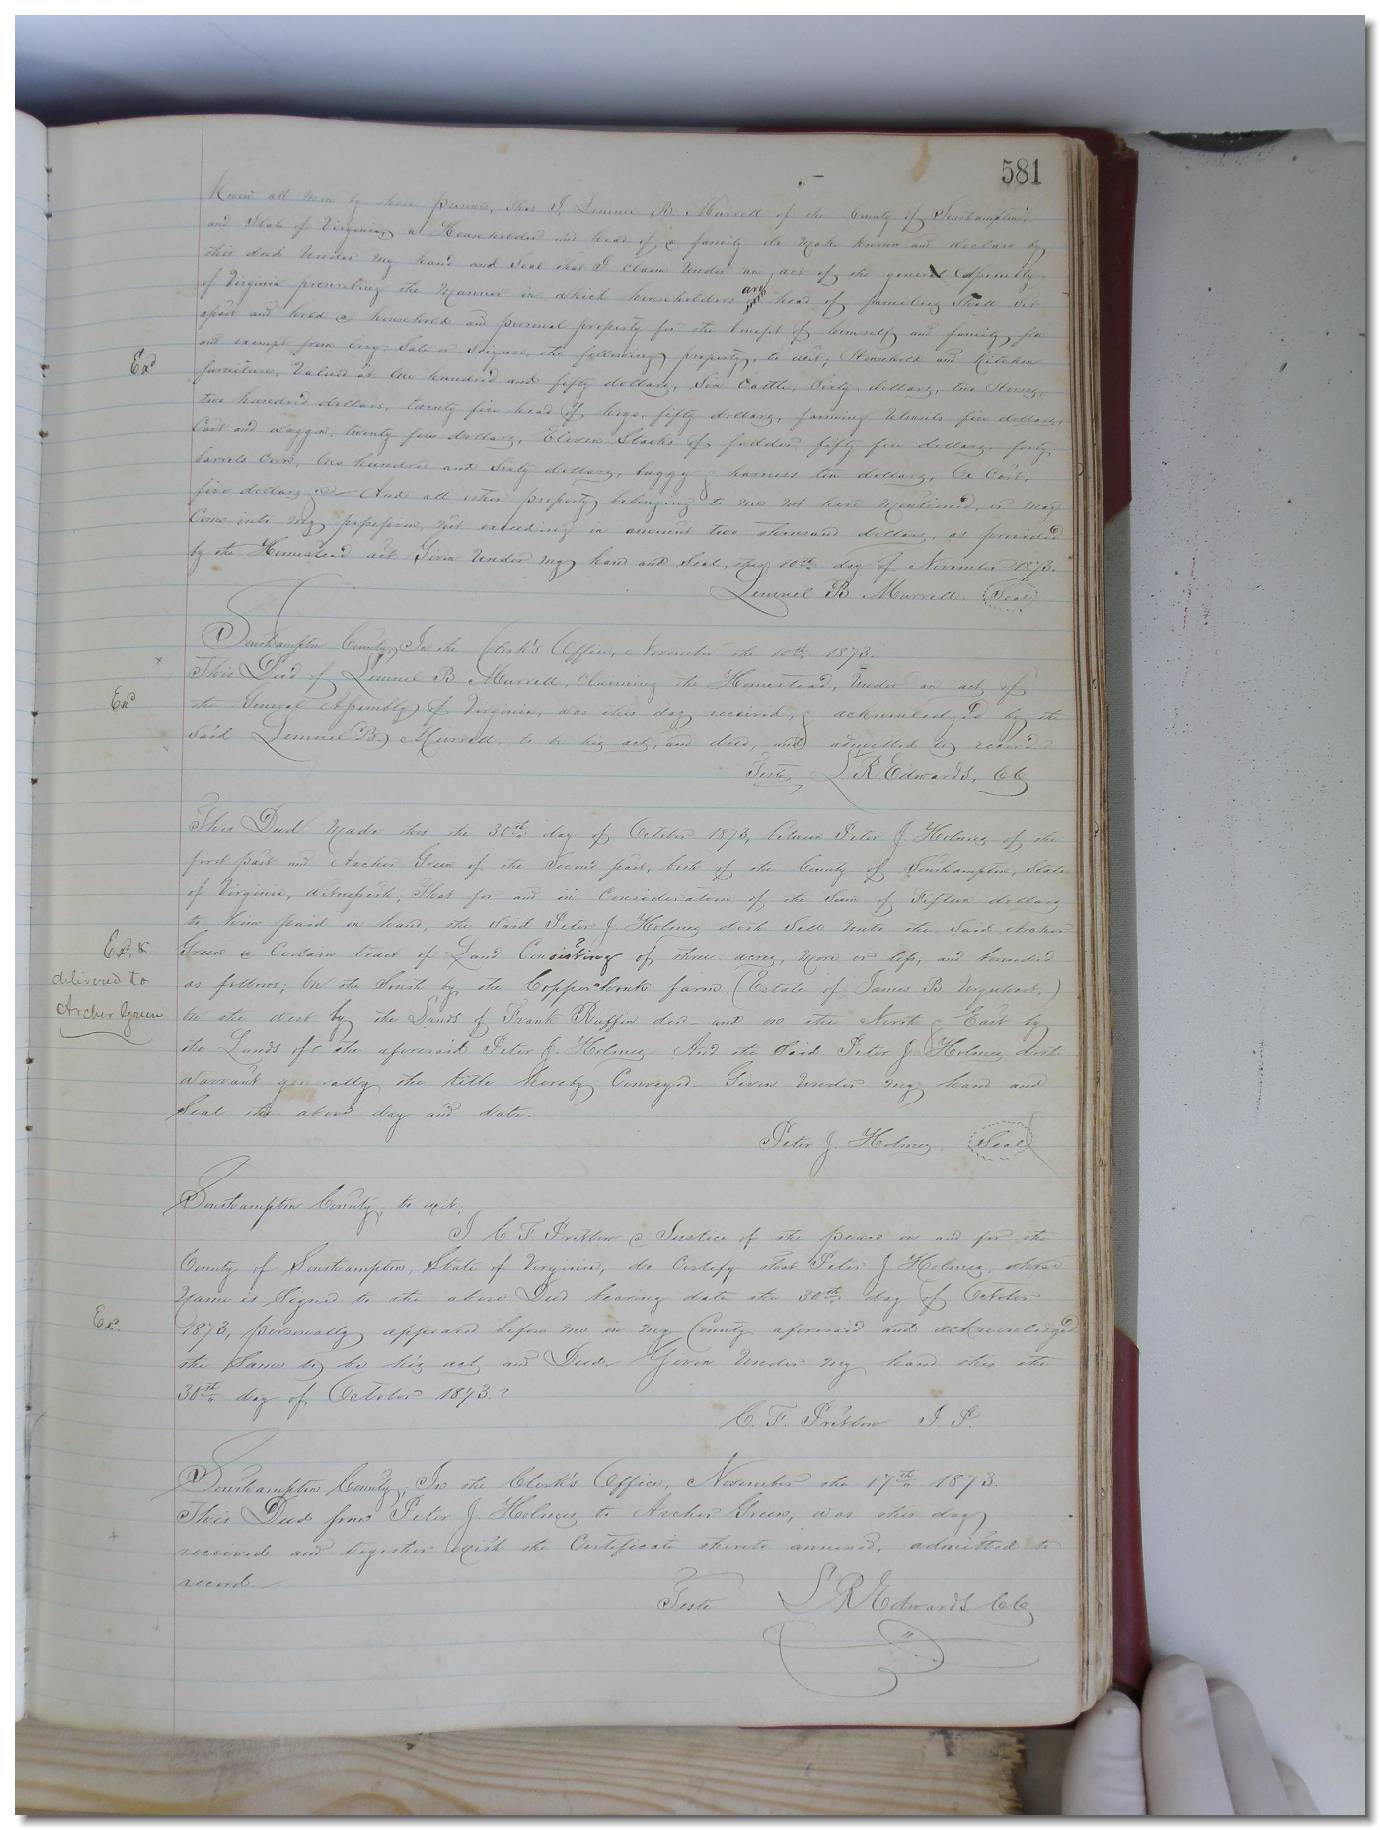 581
Know all men by these presents, that I, Lemuel B Murrell of the County of Southampton,
and State of Virginia, a Householder and head of a family do make known and declare by
this deed under my hand and seal that I claim under an act of the general Assembly
of Virginia prescribing the manner in which householders and head of families shall set
apart and hold a household and personal property for the benefit of himself and family for
and exempt from levy, sale or seizure, the following property, to wit; Household and Kitchen
Exd
furniture, valued at one hundred and fifty dollars, Six Cattle, Sixty dollars, two Horses,
two hundred dollars, twenty five head of hogs, fifty dollars, farming utensils five dollars,
Cart and waggon, twenty five dollars, Eleven Stacks of fodder fifty five dollars, forty
barrels Corn, One hundred and Sixty dollars, buggy & harness ten dollars, Ox Cart,
five dollars And all other property belonging to me not here mentioned, or may
Come into my possession, not exceeding in amount two thousand dollars, as provided
by the Homestead act Given under my hand and Seal, this 10th day of November 1873.
Lemuel B. Murrell. Seal
Southampton County, In the Clerk's Office, November the 10th, 1873.
This Deed of Lemuel B Murrell, claiming the Homestead, under an act of
Exd
the General Assembly of Virginia, was this day received, & acknowledged by the
Said Lemuel B Murrell to be his act, and deed, and admitted to record
Teste, L R Edwards, CC
This Deed made this the 30th day of October 1873, between Peter J. Holmes of the
first part and Archer Green of the Second part, both of the County of Southampton, State
of Virginia, witnesseth, That for and in Consideration of the Sum of Fifteen dollars
to him paid in hand, the Said Peter J. Holmes doth Sell unto the Said Archer
Exd, &
Green a Certain tract of Land Consisting of three acres, more or less, and bounded
delivered to
as follows; On the South by the Copperhonk farm (Estate of James B Urquhart,)
Archer Green
On the west by the Lands of Frank Ruffin decd and on the North & East by
the Lands of the aforesaid Peter J. Holmes And the Said Peter J Holmes doth
warrant generally the title hereby Conveyed. Given under my hand and
Seal the above day and date.
Peter J. Holmes, Seal
Southampton County, to wit;
I C F Pretlow a Justice of the peace in and for the
County of Southampton, State of Virginia, do Certify that Peter J Holmes, whose
Name is Signed to the above Deed bearing date the 30th day of October
Ex.
1873, personally appeared before me in my County aforesaid and acknowledged
the Same to be his act and Deed Given under my hand this the
30th day of October 1873.
C. F. Pretlow J. P.
Southampton County, In the Clerk's Office, November the 17th 1873.
This Deed from Peter J. Holmes to Archer Green, was this day
received and together with the Certificate thereto annexed, admitted to
record
Teste L R Edwards CC